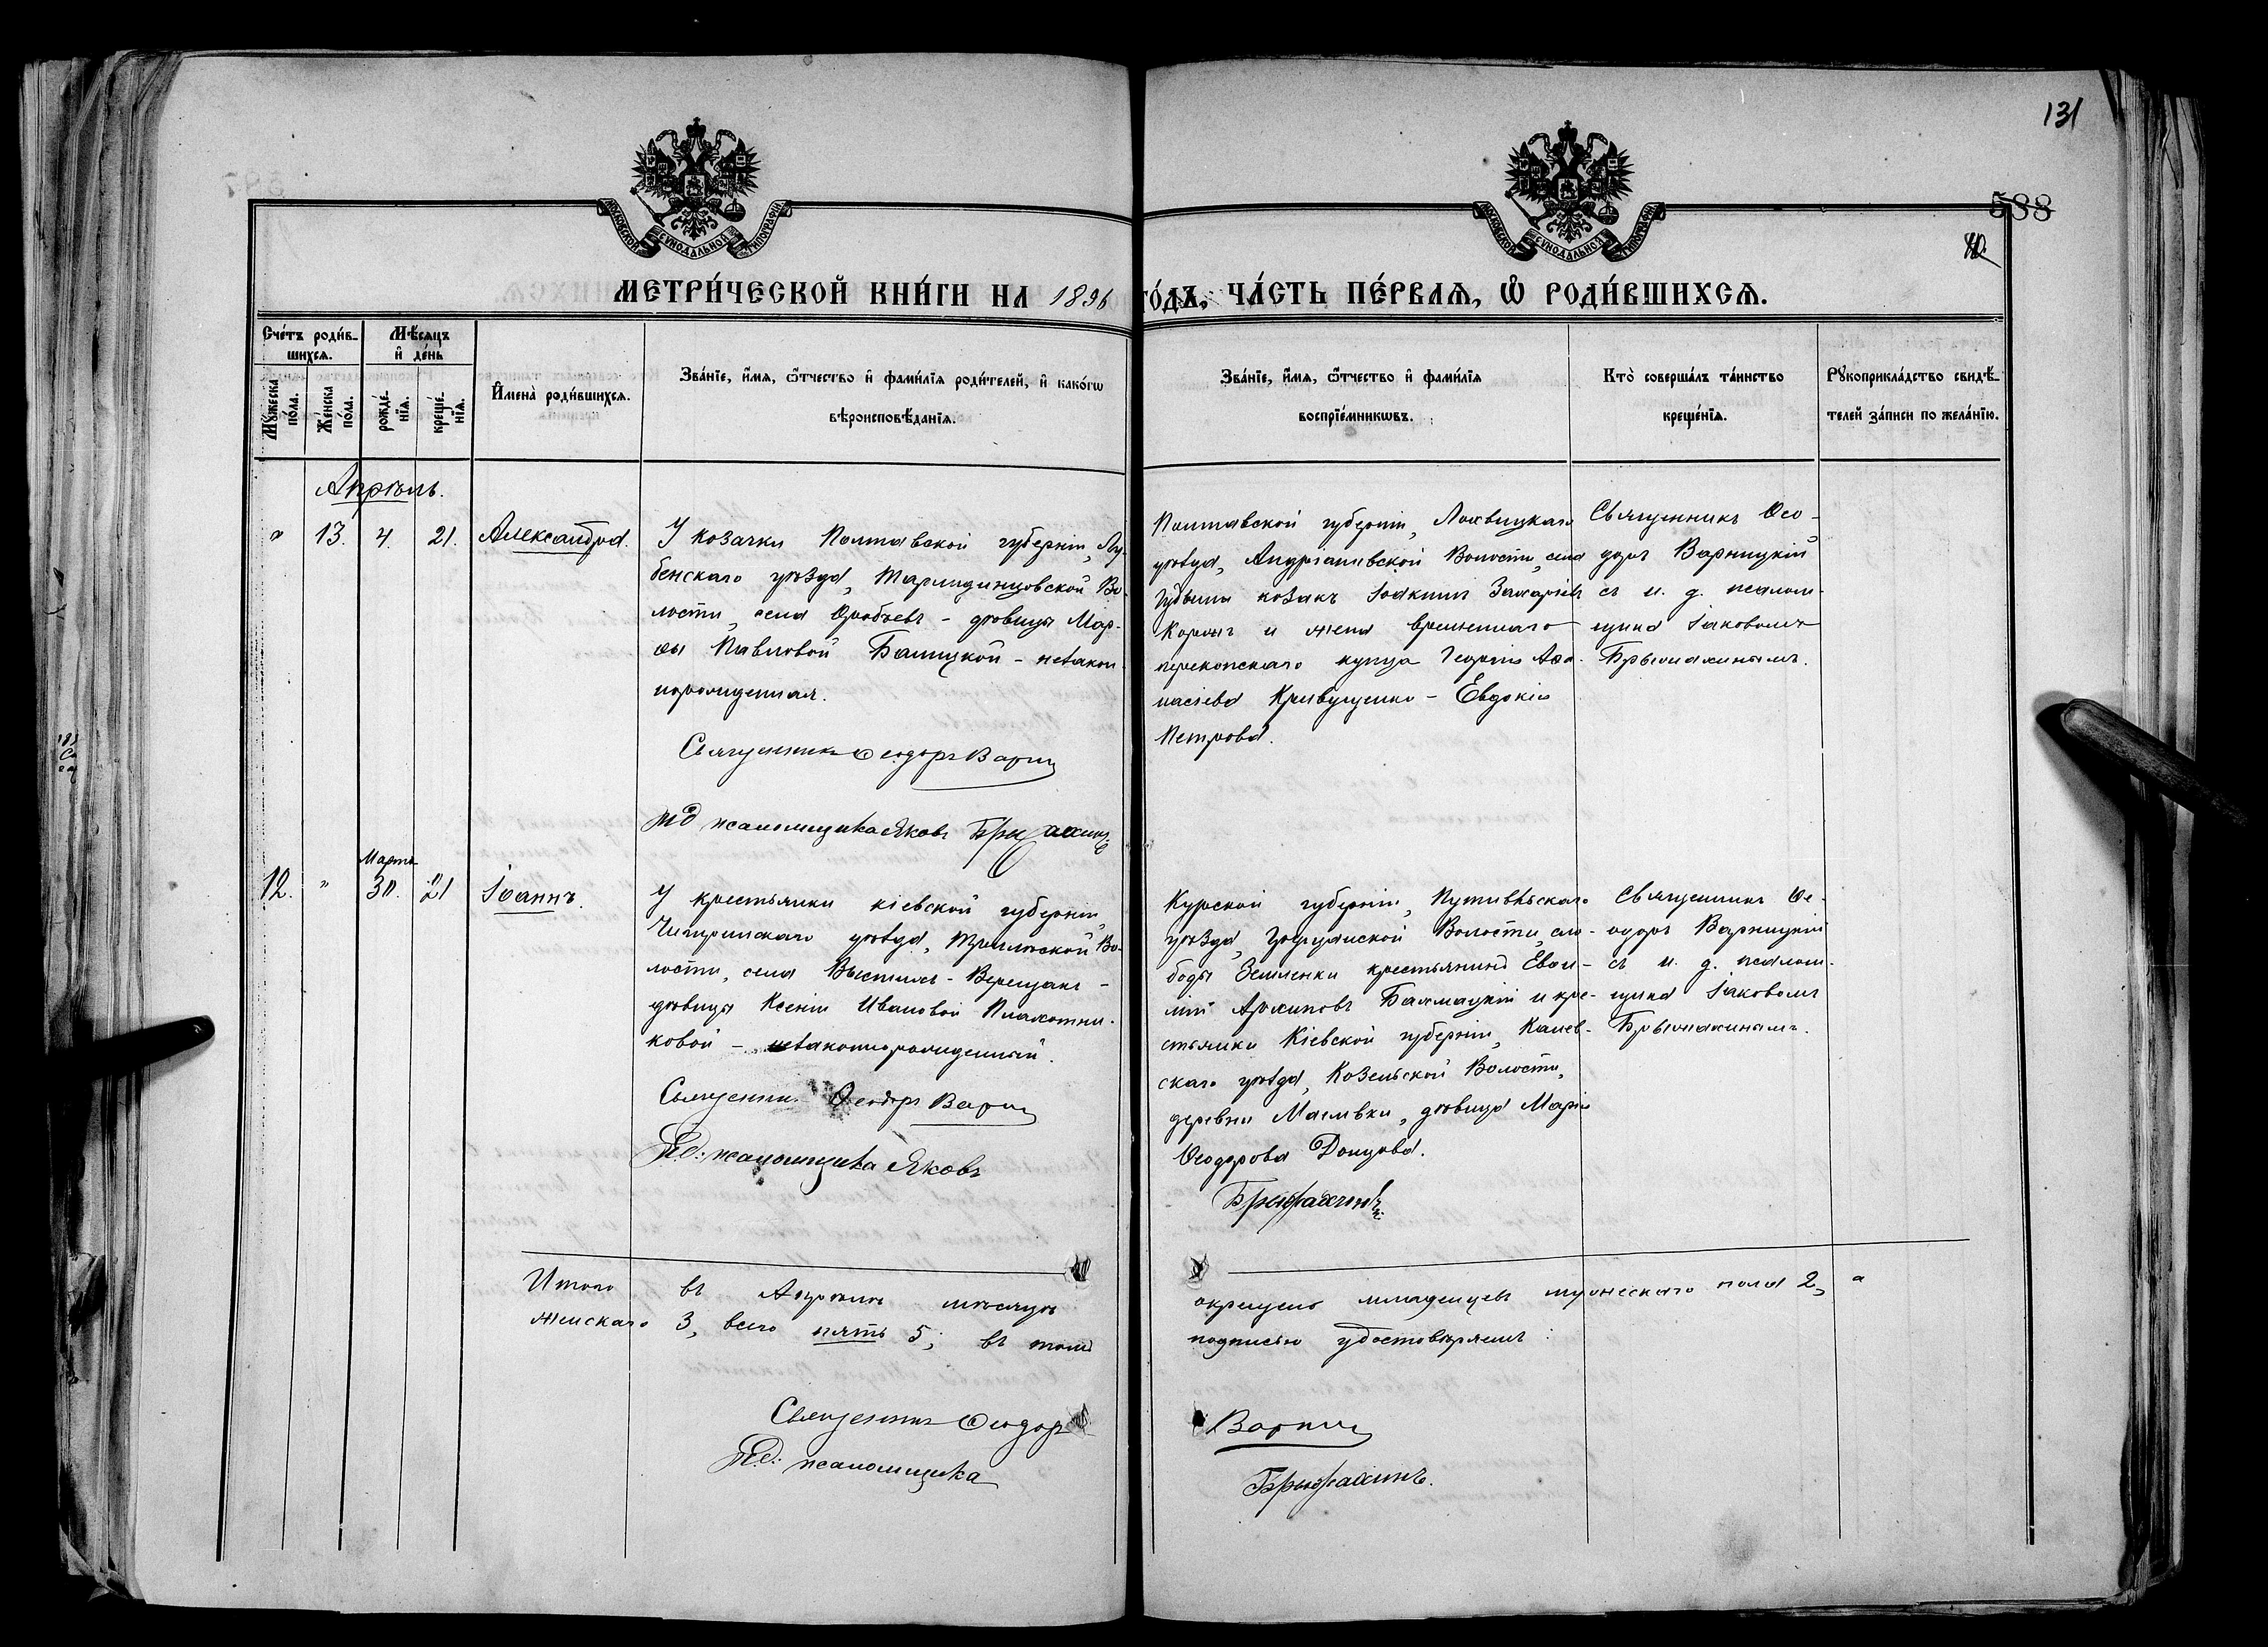 131
588
МОСКОВСКОЙ СУНОДАЛЬНОЙ ТИПОГРАФІИ
МОСКОВСКОЙ СУНОДАЛЬНОЙ ТИПОГРАФІИ
МЕТРИ́ЧЕСКОЙ КНИ́ГИ НА 1896 ГО́ДЪ, ЧА́СТЬ ПЕ́РВАѦ, Ѡ РОДИ́ВШИХСѦ.
Сче́тъ роди́в-
шихсѧ.
Мꙋжеска по́ла.
Же́нска по́ла.
Мѣ́сѧцъ
и҆ де́нь
рожде́нїѧ.
креще́нїѧ.
И҆мена̀ роди́вшихсѧ.
Зва́нїе, и҆́мѧ, ѻ҆́тчество и҆ фами́лїѧ роди́телей, и҆ како́гѡ
вѣроисповѣ́данїѧ.
Зва́нїе, и҆́мѧ, ѻ҆́тчество и҆ фами́лїѧ
воспрїе́мникѡвъ.
Кто̀ соверша́лъ та́инство
креще́нїѧ.
Рꙋкоприкла́дство свидѣ́-
телей за́писи по жела́нїю.
Апрѣль.
" 13. 4. 21. Александра.
У козачки Полтавской губерніи, Лу-
бенскаго уѣзда, Тарандинцовской Во-
лости, села Оробьевъ - дѣвицы Мар-
ѳы Павловой Балицкой - незакон-
норожденная.
Священникъ Ѳеодоръ Варниц
И д псаломщика Яковъ Брымахинъ
Полтавской губерніи, Лохвицкаго
уѣзда, Андріяшевской Волости, села
козакъ Іоакимъ Захаріевъ
и жена временнаго
перекопскаго купца Георгія Аѳа-
насіева Кривущенко - Евдокія
Петрова.
Священникъ Ѳео-
доръ Варницкій
съ и. д. псалом-
щика Іаковомъ
Брымахинымъ.
12. " Марта 30. 21 Іоаннъ.
У крестьянки кіевской губерніи,
Чигиринскаго уѣзда, Трилѣсской Во-
лости, села - Верещакъ -
дѣвицы Ксеніи Ивановой Плахотни-
ковой - незаконнорожденный.
Священник Ѳеодоръ Варниц
И.д: псаломщика Яковъ
Курской губерніи, Путивльскаго
уѣзда, Волости, сло-
боды Землянки крестьянинъ Евѳи-
мій Архиповъ Бахмацкій и кре-
стьянки Кіевской губерніи, Канев-
скаго уѣзда, Козельской Волости,
деревни Масловки, дѣвица Марія
Ѳеодорова Донцова.
Брымахинъ
Священникъ Ѳе-
одоръ Варницкій
съ и. д. псалом-
щика Іаковомъ
Брымахинымъ.
Итого въ Апрѣлѣ мѣсяцѣ окрещено младенцевъ мужескаго пола 2, а
женскаго 3, всего пять 5; въ томъ подписью удостовѣряемъ:
Священникъ Ѳеодоръ Варниц
И.д: псаломщика Брымахинъ.